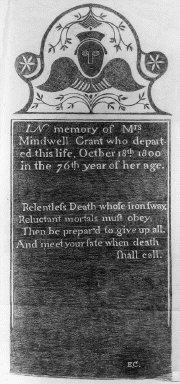 IN memory of Mrs
Mindwell Grant who depart-
ed this life, Octber 18th 1800
in the 76th year of her age.
Relentleſs Death whoſe iron ſway,
Reluctant mortals muſt obey,
Then be prepar'd to give up all,
And meet your fate when death
ſhall call.
E.C.